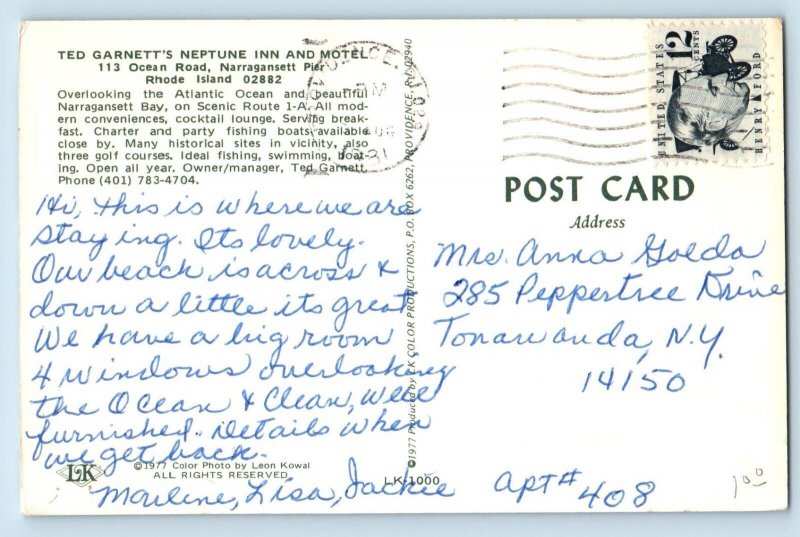 TED GARNETT'S NEPTUNE INN AND MOTEL
113 Ocean Road, Narragansett Pier
Rhode Island 02882
Overlooking the Atlantic Ocean and beautiful
Narragansett Bay, on Scenic Route 1-A. All mod-
ern conveniences, cocktail lounge. Serving break-
fast. Charter and party fishing boats available
close by. Many historical sites in vicinity, also
three golf courses. Ideal fishing, swimming, boat-
ing. Open all year. Owner/manager, Ted Garnett
Phone (401) 783-4704.
Hi, this is where we are
staying. Its lovely.
Our beach is across &
down a little its great
We have a big room
4 windows overlooking
the Ocean & Clean, well
furnished. Details when
we get back.
Marlene, Lisa, Jackie
LK
©1977 Color Photo by Leon Kowal
ALL RIGHTS RESERVED
LK-1000
©1977 Produced by LK COLOR PRODUCTIONS, P.O. BOX 6262, PROVIDENCE, R.I. 02940
PM
UNITED STATES
12 CENTS
HENRY FORD
POST CARD
Address
Mrs. Anna Golda
285 Peppertree Drive
Tonawanda, N.Y.
14150
Apt# 408
1.00